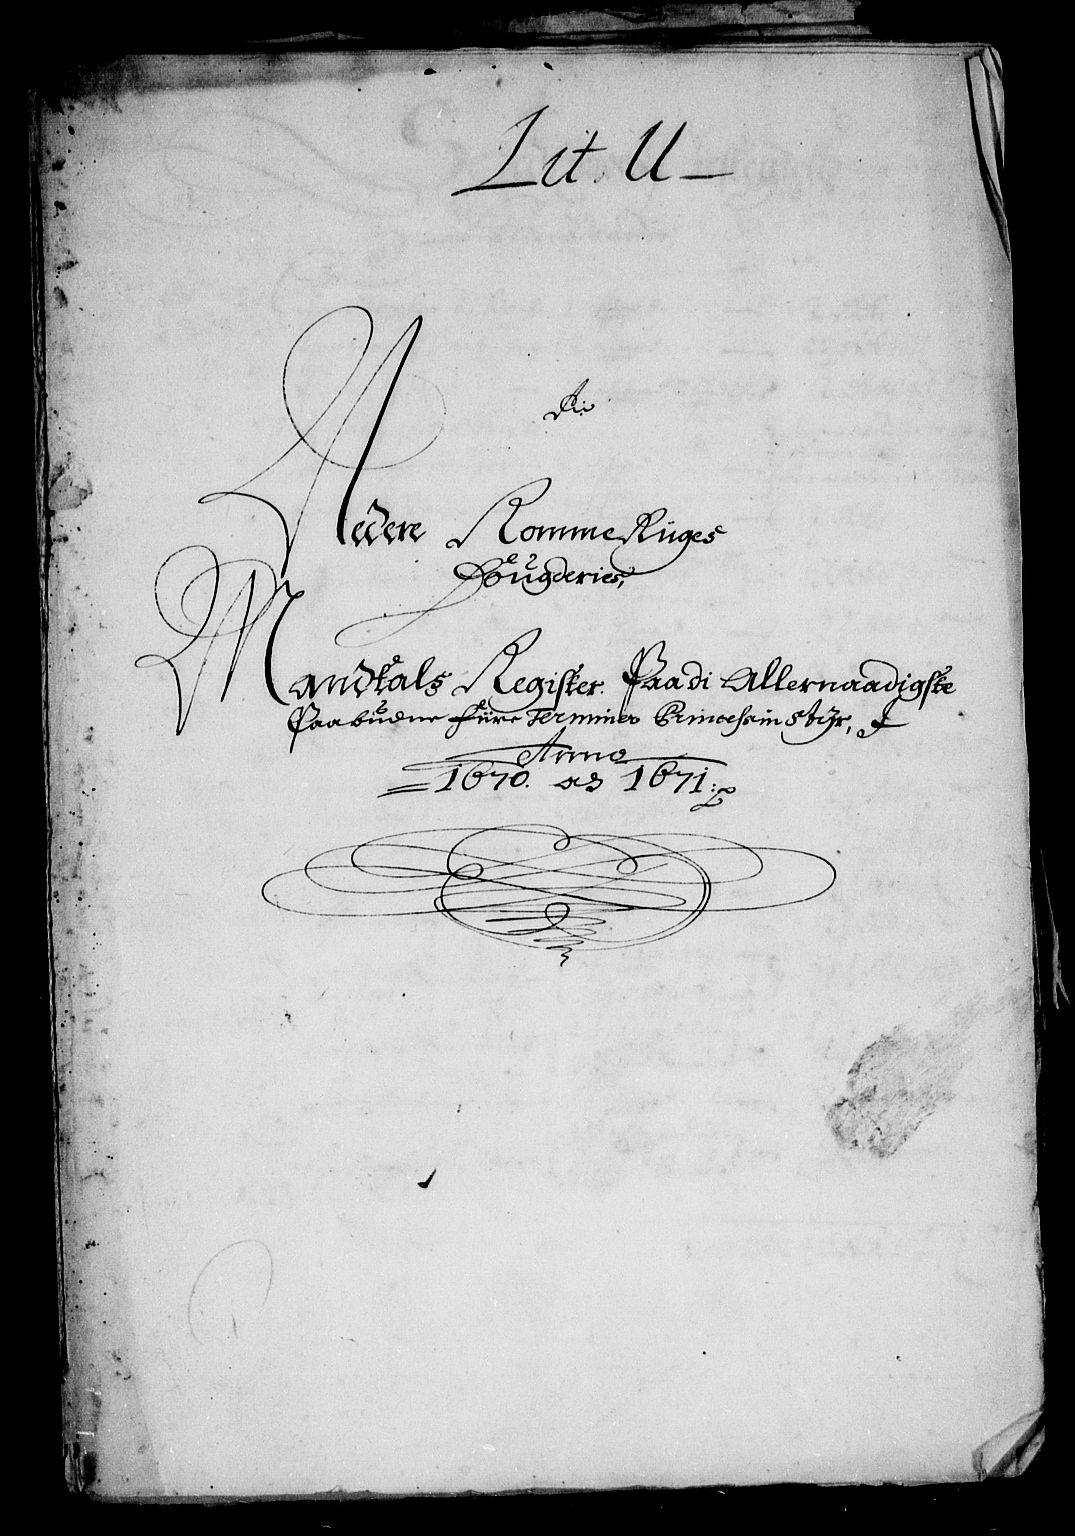 Lit. U
Nedere Romme Riiges
Fougderies,
Mandtals Register. Paa di Allernaadigste
Paabudne fiire Terminer Princessin Styr,
Anno
1670. ad 1671.